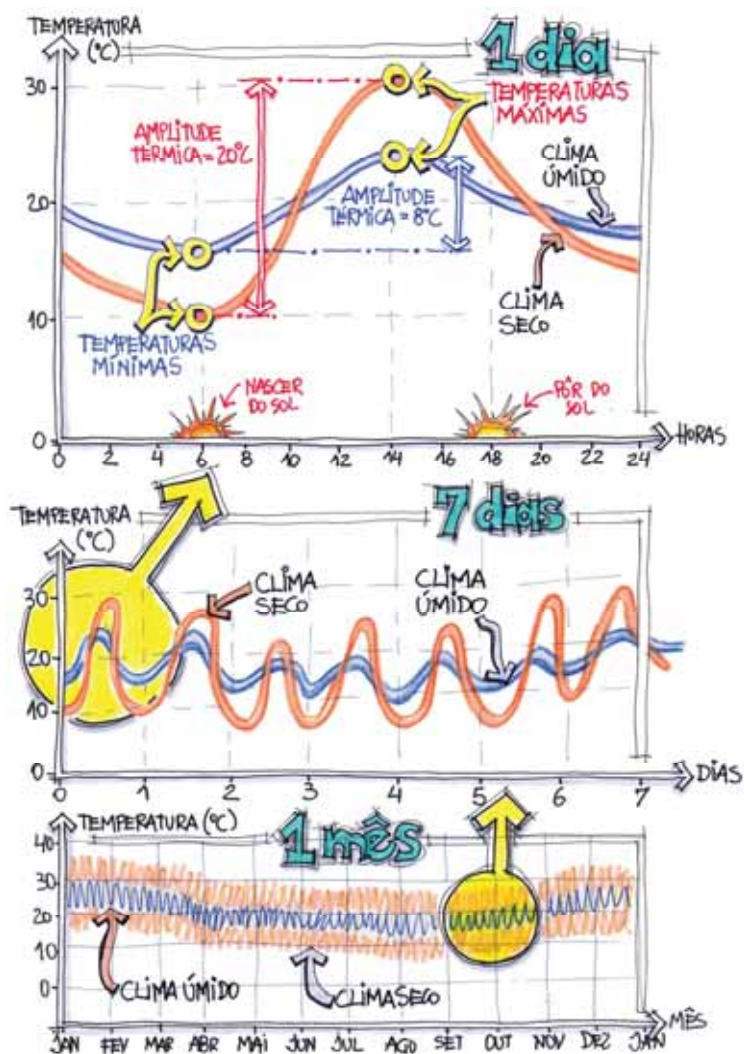 TEMPERATURA
(°C)
1 dia
30
20
10
0
AMPLITUDE
TÉRMICA = 20°C
TEMPERATURAS
MÁXIMAS
CLIMA
ÚMIDO
AMPLITUDE
TÉRMICA = 8°C
CLIMA
SECO
TEMPERATURAS
MÍNIMAS
NASCER
DO SOL
PÔR DO
SOL
0 2 4 6 8 10 12 14 16 18 20 22 24
HORAS
TEMPERATURA
(°C)
7 dias
30
20
10
0
CLIMA
SECO
CLIMA
ÚMIDO
0 1 2 3 4 5 6 7
DIAS
TEMPERATURA (°C)
1 mês
40
30
20
10
0
CLIMA ÚMIDO
CLIMA SECO
MÊS
JAN FEV MAR ABR MAI JUN JUL AGO SET OUT NOV DEZ JAN